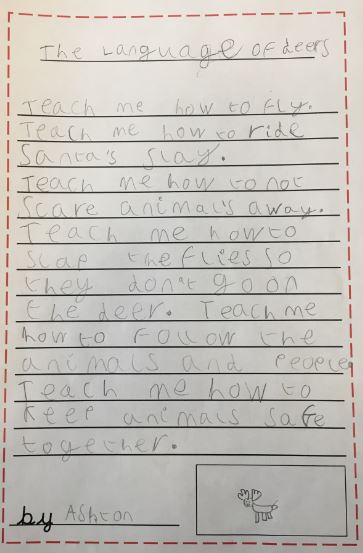 The Language of deers
Teach me how to fly.
Teach me how to ride
Santa's slay.
Teach me how to not
scare animal's away.
Teach me how to
slap the flies so
they don't go on
the deer. Teach me
how to follow the
animals and people
Teach me how to
keep animals safe
together.
by Ashton